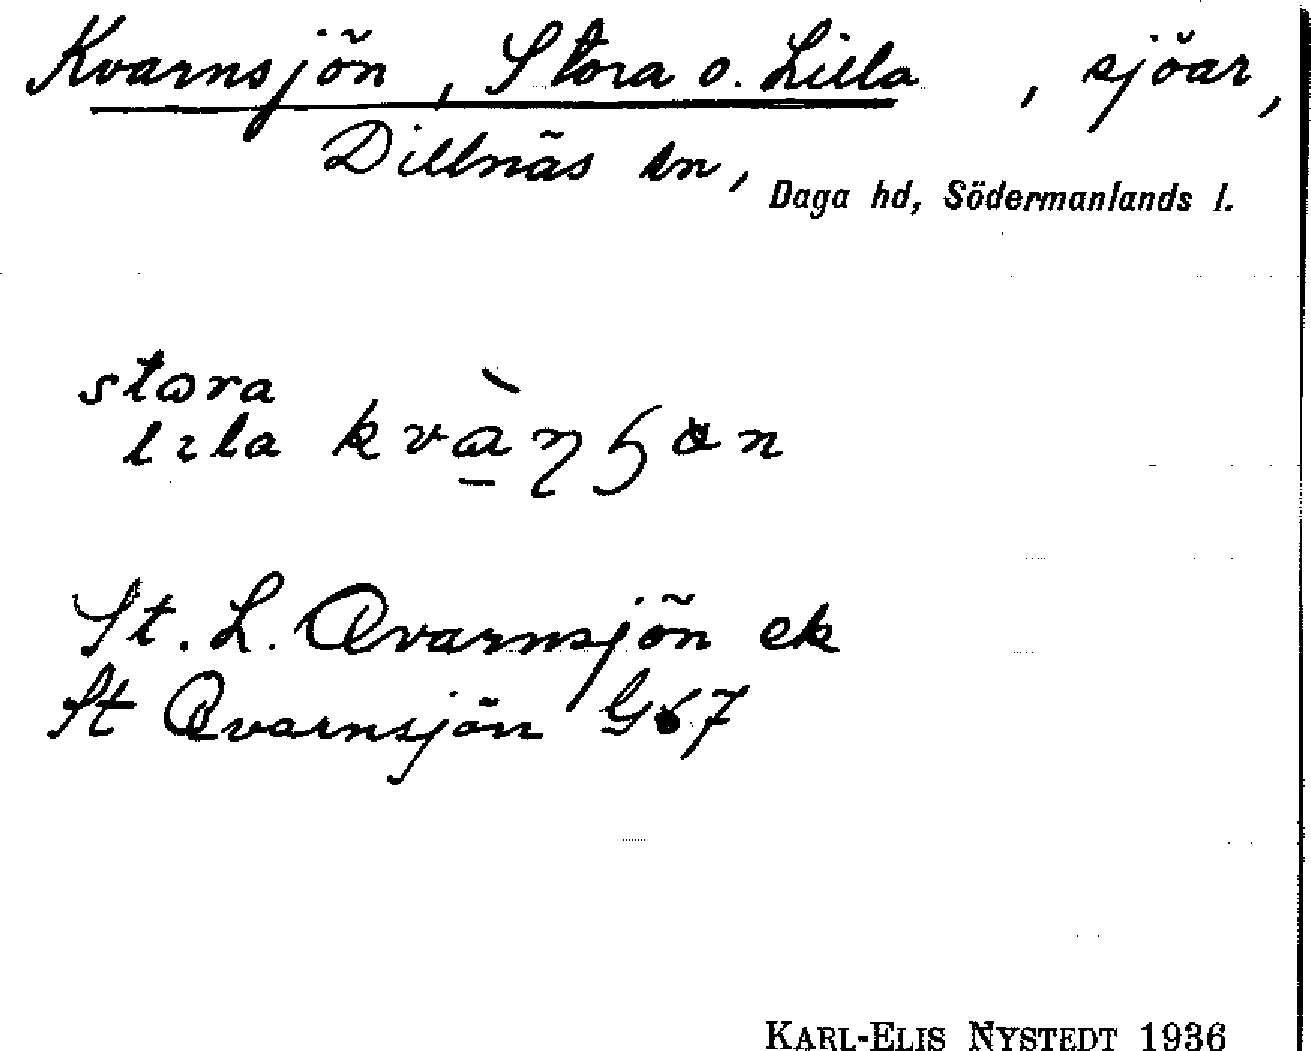 Kvarnsjön, Stora o. Lilla, sjöar,
Dillnäs sn,
Daga hd, Södermanlands l.
stora
lıla kvàŋɧɷn
St. L. Qvarnsjön ek
St Qvarnsjön G67
KARL-ELIS NYSTEDT 1936